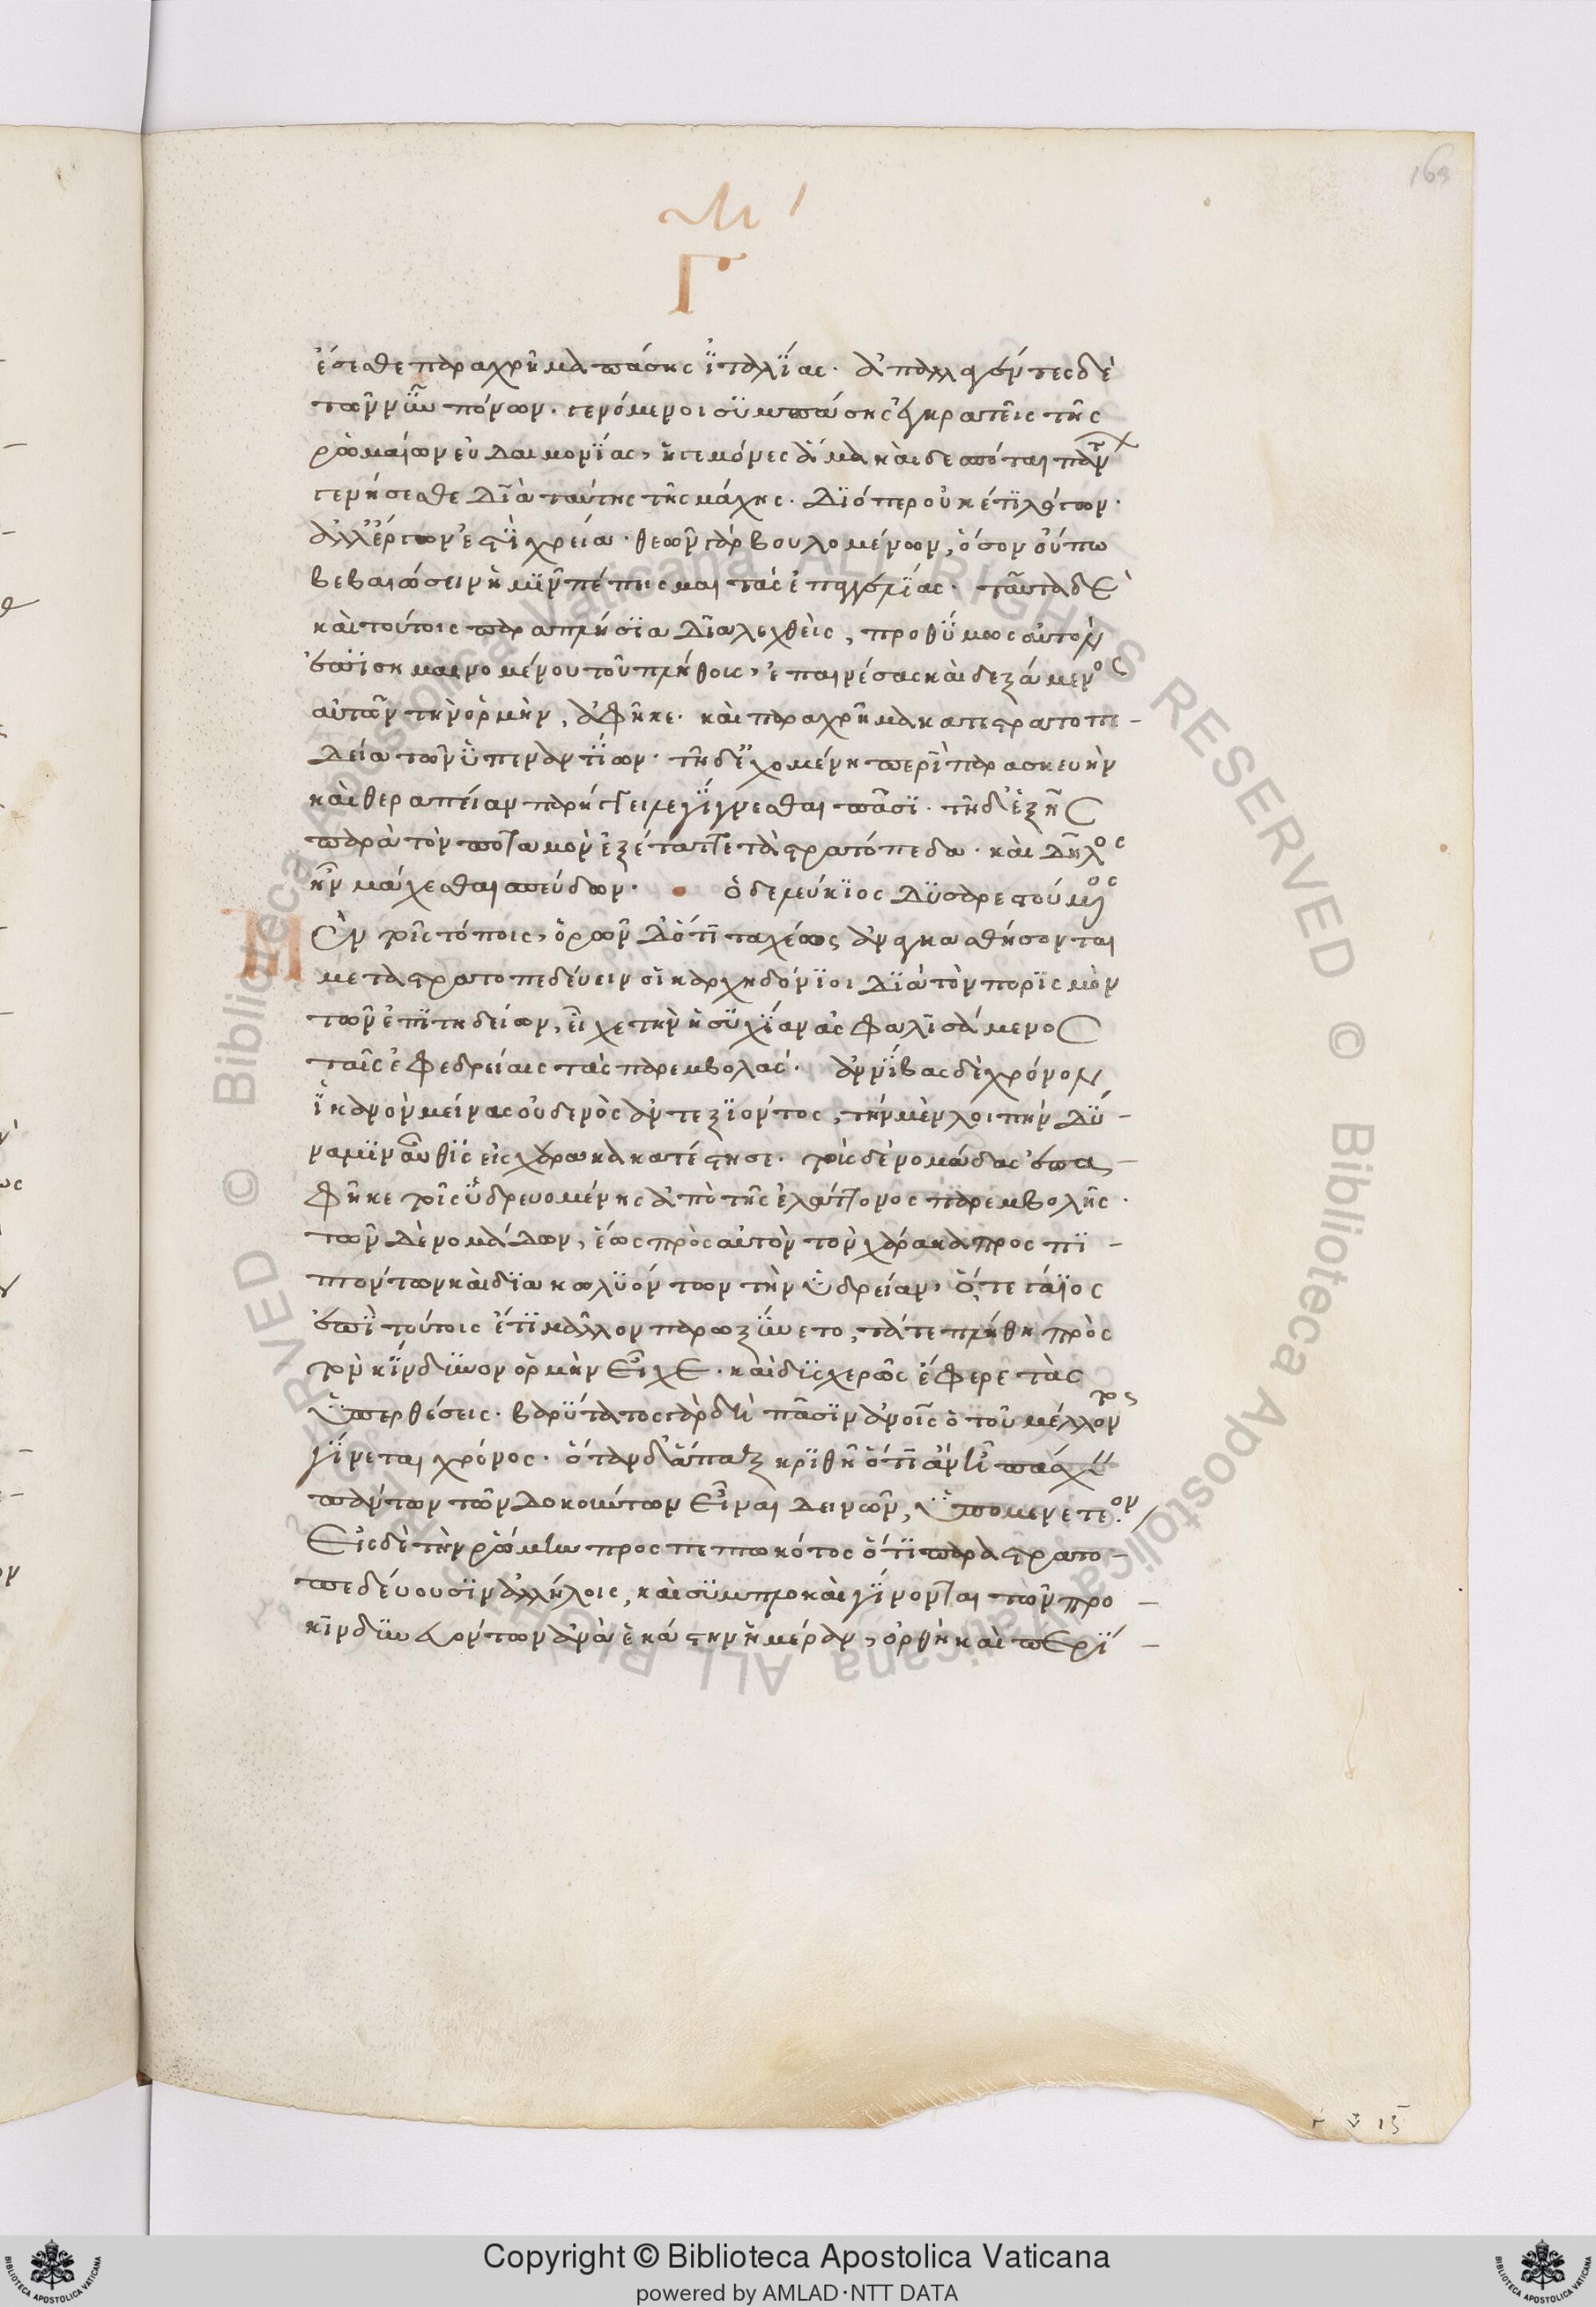 169
Γ
ἔσεσθε παραχρῆμα πάσης ἰταλίας· ἀπαλλαγέντες δὲ
τῶν νῦν πόνων· γενόμενοι συμπάσης ἐγκρατεῖς τῆς
ρωμαίων εὐδαιμονίας, ἡγεμόνες ἅμα καὶ δεσπόται πάντων
γενήσεσθε διὰ ταύτης τῆς μάχης· διόπερ οὐκέτι λόγων·
ἀλλ' ἔργων ἐστὶ χρεία· θεῶν γὰρ βουλομένων, ὅσον οὔπω
βεβαιώσειν ἡμῖν πέπεισμαι τὰς ἐπαγγελίας· ταῦτα δὲ
καὶ τούτοις παραπλήσια διαλεχθεὶς, προθύμως αὐτὸν
ἐπισημαινομένου τοῦ πλήθους, ἐπαινέσας καὶ δεξάμενος
αὐτῶν τὴν ὁρμὴν, ἀφῆκε· καὶ παραχρῆμα κατεστρατοπε-
δεία τῶν ὑπεναντίων· τῇ δ' ἐχομένῃ περὶ παρασκευὴν
καὶ θεραπείαν παρήγγειλε γίγνεσθαι πᾶσι· τῇ δ' ἑξῆς
παρὰ τὸν ποταμὸν ἐξέταττε τὰ στρατόπεδα· καὶ δῆλος
ἦν μάχεσθαι σπεύδων· ὁ δὲ λεύκιος δυσαρεστούμενος
ἐν τοῖς τόποις, ὁρῶν δ' ὅτι ταχέως ἀναγκασθήσονται
μεταστρατοπεδεύειν οἱ καρχηδόνιοι διὰ τὸν πορισμὸν
τῶν ἐπιτηδείων, εἶχε τὴν ἡσυχίαν ἀσφαλισάμενος
ταῖς ἐφεδρείαις τὰς παρεμβολάς· ἀννίβας δὲ χρόνον
ἱκανὸν μείνας οὐδενὸς ἀντεξιόντος, τὴν μὲν λοιπὴν δύ-
ναμιν αὖθις εἰς χάρακα κατέστησε· τοὺς δὲ νομάδας ἐπα-
φῆκε τοῖς ὑδρευομένης ἀπὸ τῆς ἐλάττονος παρεμβολῆς·
τῶν δὲ νομάδων, ἕως πρὸς αὐτὸν τὸν χάρακα προσπι-
πτόντων καὶ διακωλυόντων τὴν ὑδρείαν, ὅ,τε γάϊος
ἐπὶ τούτοις ἔτι μᾶλλον παρωξύνετο, τά τε πλήθη πρὸς
τὸν κίνδυνον ὁρμὴν εἶχε· καὶ δισχερῶς ἔφερε τὰς
ὑπερθέσεις· βαρύτατος γὰρ δὴ πᾶσιν ἀνοις ὁ τοῦ μέλλοντος
γίνεται χρόνος· ὅταν δ' ἅπαξ κριθῇ ὅτι ἂν ᾖ πάσχειν
πάντων τῶν δοκούντων εἶναι δεινῶν, ὑπομενετέον·
Εἰς δὲ τὴν ῥώμην προσπεπτωκότος ὅτι παραστρατο-
πεδεύουσιν ἀλλήλοις, καὶ συμπλοκαὶ γίνονται τῶν προ-
κινδυνευόντων ἀνὰ ἑκάστην ἡμέραν, ὀρθὴ καὶ περί-
Copyright © Biblioteca Apostolica Vaticana
powered by AMLAD·NTT DATA